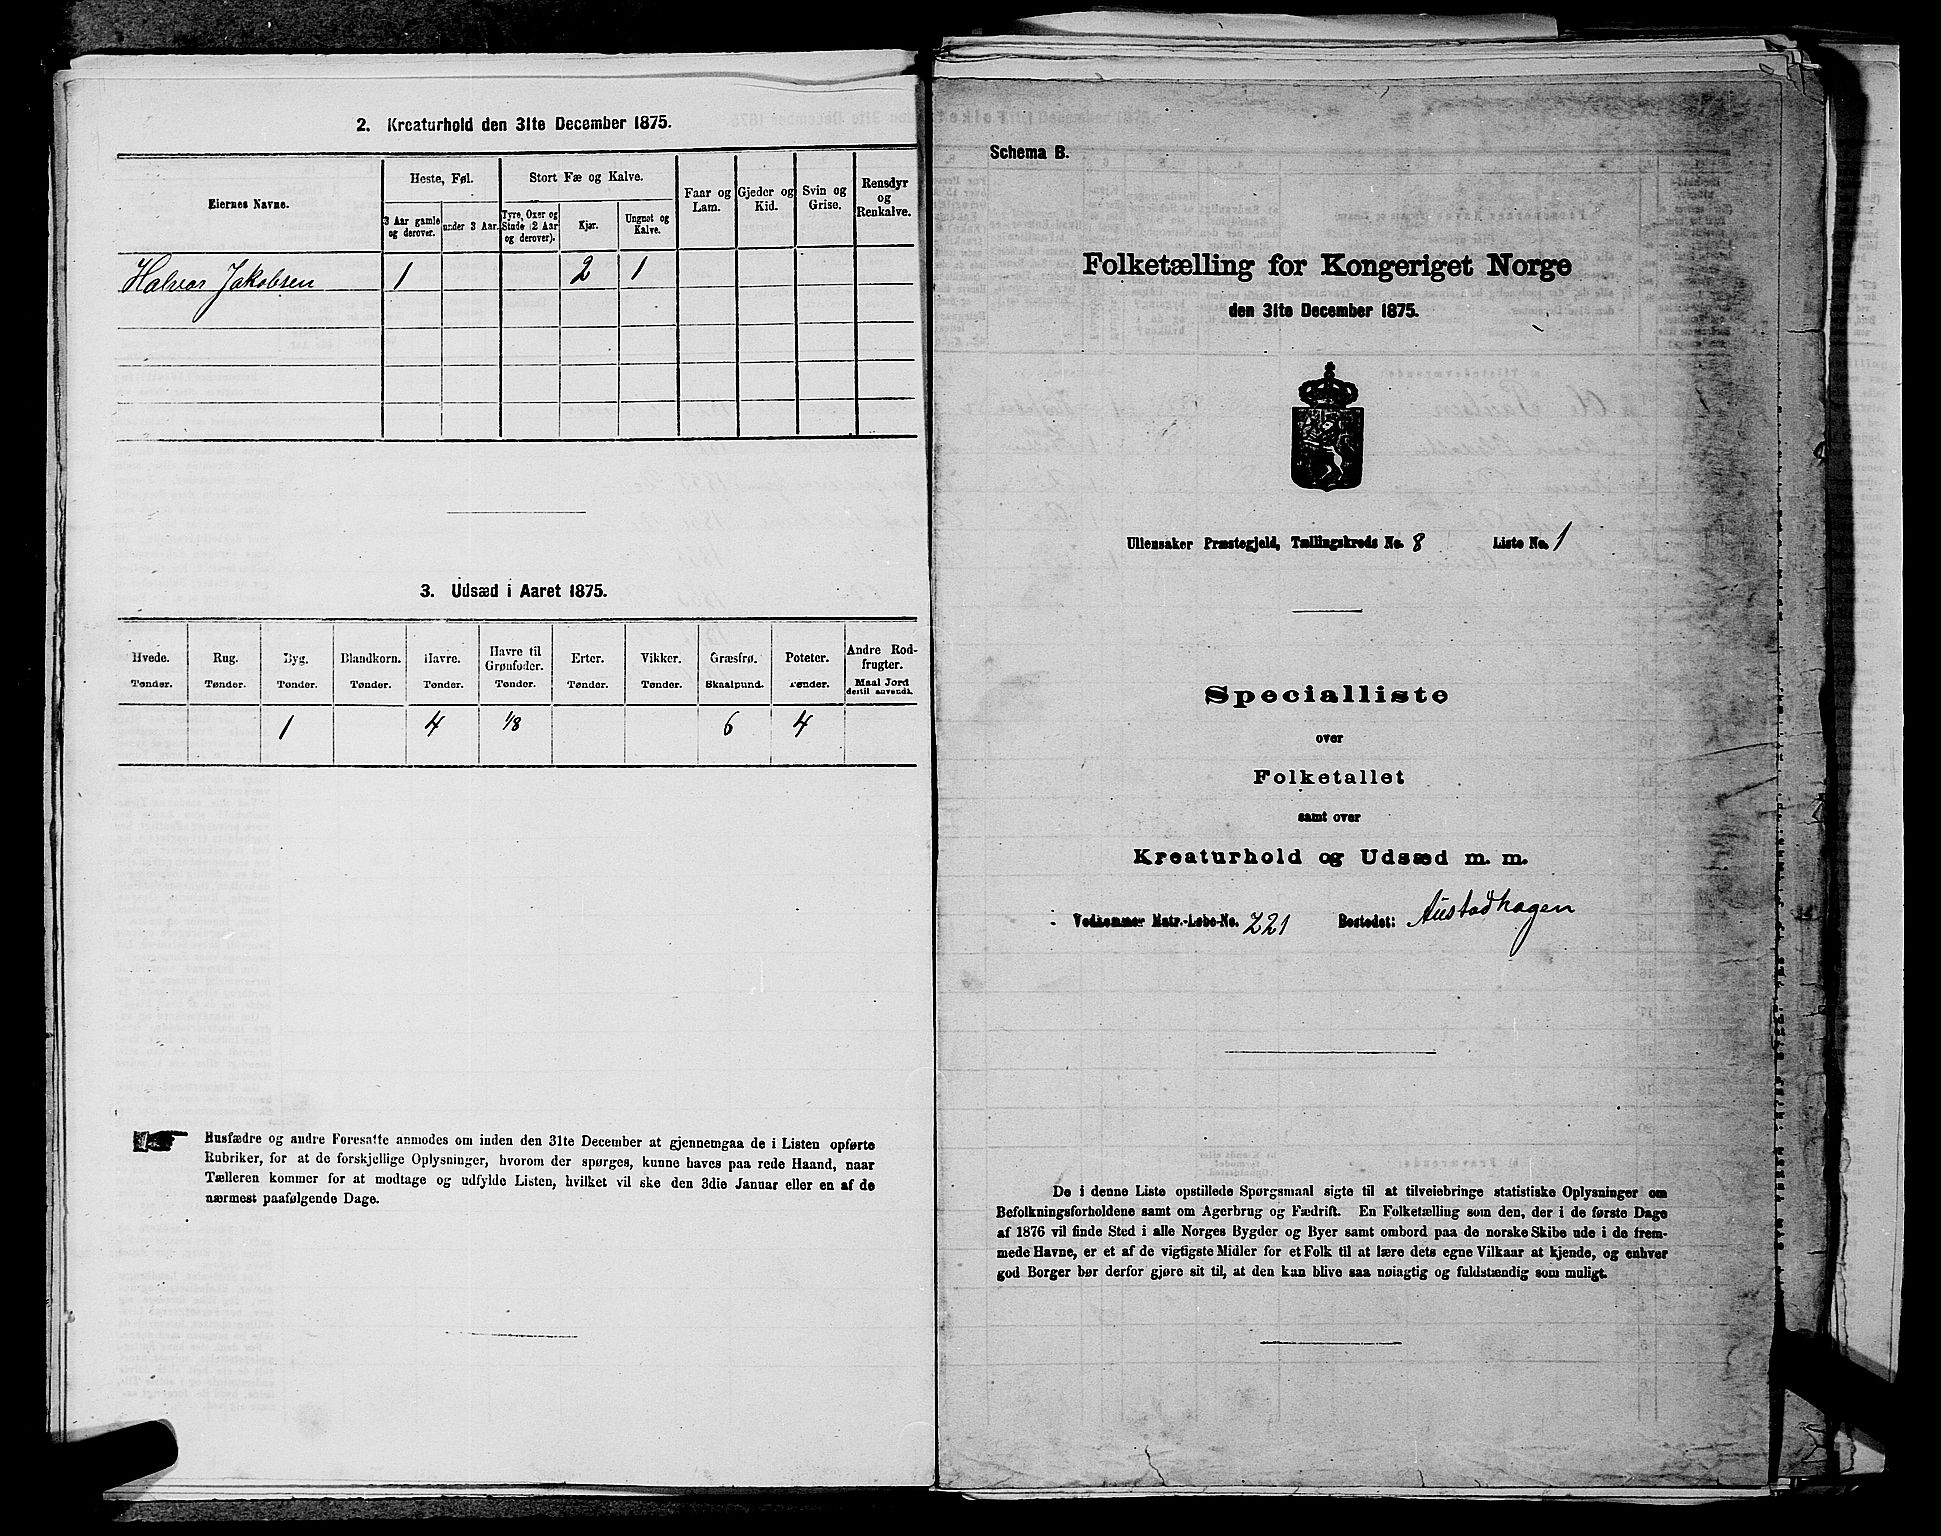 2. Kreaturhold den 31te December 1875.
Eiernes Navne.
Heste, Føl.
Stort Fæ og Kalve.
Faar og Lam.
Gjeder og Kid.
Svin og Grise.
Rensdyr og Renkalve.
3 Aar gamle og derover.
under 3 Aar.
Tyre, Oxer og Stude (2 Aar og derover).
Kjør.
Ungnøt og Kalve.
Halvor Jakobsen 1 2 1
3. Udsæd i Aaret 1875.
Hvede. Rug. Byg. Blandkorn. Havre. Havre til Grønfoder. Erter. Vikker. Græsfrø. Poteter. Andre Rodfrugter.
Tønder. Tønder. Tønder. Tønder. Tønder. Tønder. Tønder. Tønder. Skaalpund. Tønder. Maal Jord dertil anvendt.
1 4 1/8 6 4
Husfædre og andre Foresatte anmodes om inden den 31te December at gjennemgaa de i Listen opførte
Rubriker, for at de forskjellige Oplysninger, hvorom der spørges, kunne haves paa rede Haand, naar
Tælleren kommer for at modtage og udfylde Listen, hvilket vil ske den 3die Januar eller en af de
nærmest paafølgende Dage.
Schema B.
Folketælling for Kongeriget Norge
den 31te December 1875.
Ullensaker Præstegjeld, Tællingskreds No. 8 Liste No. 1
Specialliste
over
Folketallet
samt over
Kreaturhold og Udsæd m. m.
Vedkommer Matr.-Løbe-No. 221 Bostedet: Austadhagen
De i denne Liste opstillede Spørgsmaal sigte til at tilveiebringe statistiske Oplysninger om
Befolkningsforholdene samt om Agerbrug og Fædrift. En Folketælling som den, der i de første Dage
af 1876 vil finde Sted i alle Norges Bygder og Byer samt ombord paa de norske Skibe ude i de frem-
mede Havne, er et af de vigtigste Midler for et Folk til at lære dets egne Vilkaar at kjende, og enhver
god Borger bør derfor gjøre sit til, at den kan blive saa nøiagtig og fuldstændig som muligt.